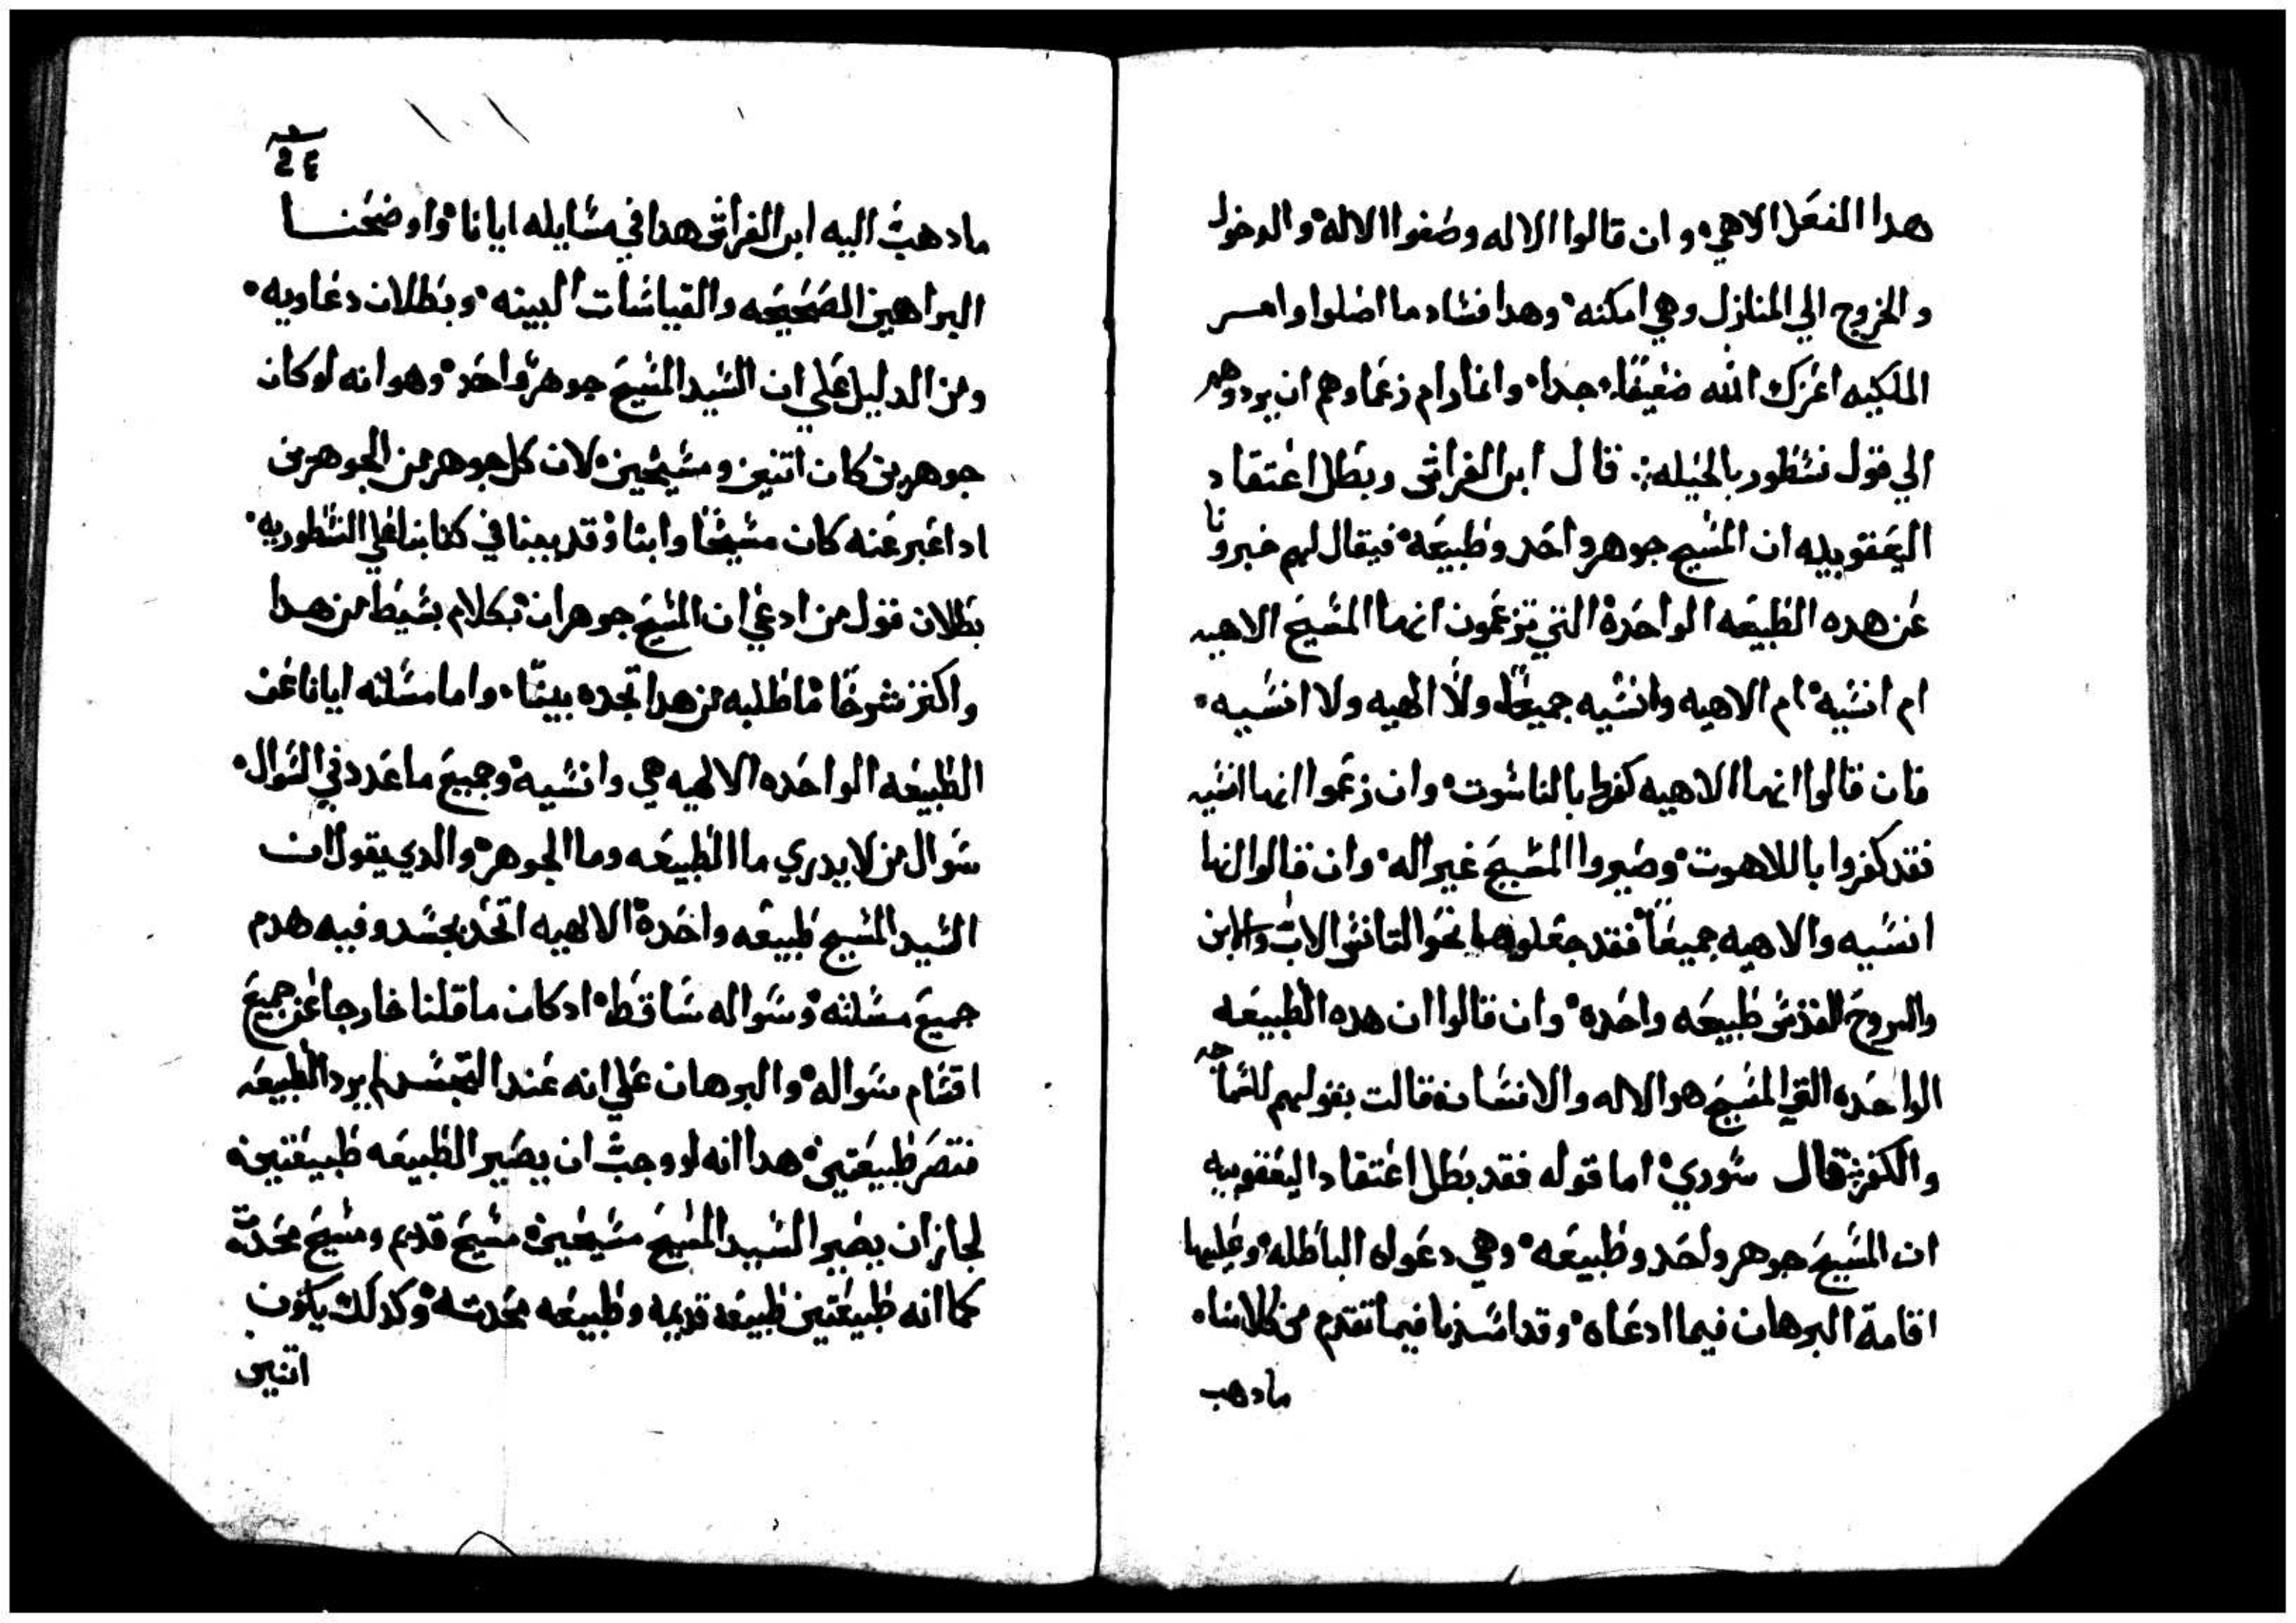 هدا الفعل الاهي وان قالوا الاله وصفوا الاله والدخول
والخروج الي المنازل وهي امكنه وهدا فساد ما اصلوا وامر
الملكيه اعزك الله ضعيفا جدا وانما رام زعماوهم ان يردوهم
الي قول نسطور بالحيله قال ابن الفراش وبطل اعتقاد
اليعقوبيه ان المسيح جوهر واحد وطبيعه فيقال لهم خبرونا
عن هده الطبيعه الواحدة التي تزعمون انها المسيح الاهيه
ام انسيه ام الاهيه وانسيه جميعا ولا الهيه ولا انسيه
فان قالوا انها الاهيه كفروا بالناسوت وان زعموا انها انسيه
فقد كفروا باللاهوت وصيروا المسيح غير اله وان قالوا انها
انسيه والاهيه جميعا فقد جعلوها نحو الثالوث الاب والابن
والروح القدس طبيعه واحده وان قالوا ان هده الطبيعه
الواحده التي المسيح هو الاله والانسان فقالت بقولهم للسماجه
والكفر قال سوري اما قوله فقد بطل اعتقاد اليعقوبيه
ان المسيح جوهر واحد وطبيعه وهي دعواه الباطله وعليها
اقامة البرهان فيما ادعاه وقد افسدنا فيما تقدم من كلامناه
مادهب
٢٤
مادهب اليه ابن الفراش هدا في مسايله ايانا واوضحنا
البراهين الصحيحه والقياسات البينه وبطلان دعاويه
ومن الدليل علي ان السيد المسيح جوهر واحد وهو انه لو كان
جوهرين كان اتنين ومسيحين لان كل جوهر من الجوهرين
ادا عبر عنه كان مسيحا وابنا وقد بينا في كتابنا علي النسطوريه
بطلان قول من ادعي ان المسيح جوهران بكلام بسيط من هدا
واكتر شرحا فاطلبه من هدا تجده بينا واما مسلته ايانا عن
الطبيعه الواحده الالهيه هي وانسيه وجميع ما عدد في السوال
سوال من لا يدري ما الطبيعه وما الجوهر والدي يقول ان
السيد المسيح طبيعه واحدة الالهيه اتحد بجسد وفيه هدم
جميع مسلته وسواله ساقط اد كان ما قلنا خارجا عن جميع
اقسام سواله والبرهان علي انه عند التجسد لم يرد الطبيعه
فتصر طبيعتين هدا انه لو وجب ان يصير الطبيعه طبيعتين
لجاز ان يصير السيد المسيح مسيحين مسيح قديم ومسيح محدت
كما انه طبيعتين طبيعه قديمه وطبيعه محدته وكدلك يكون
اتنين